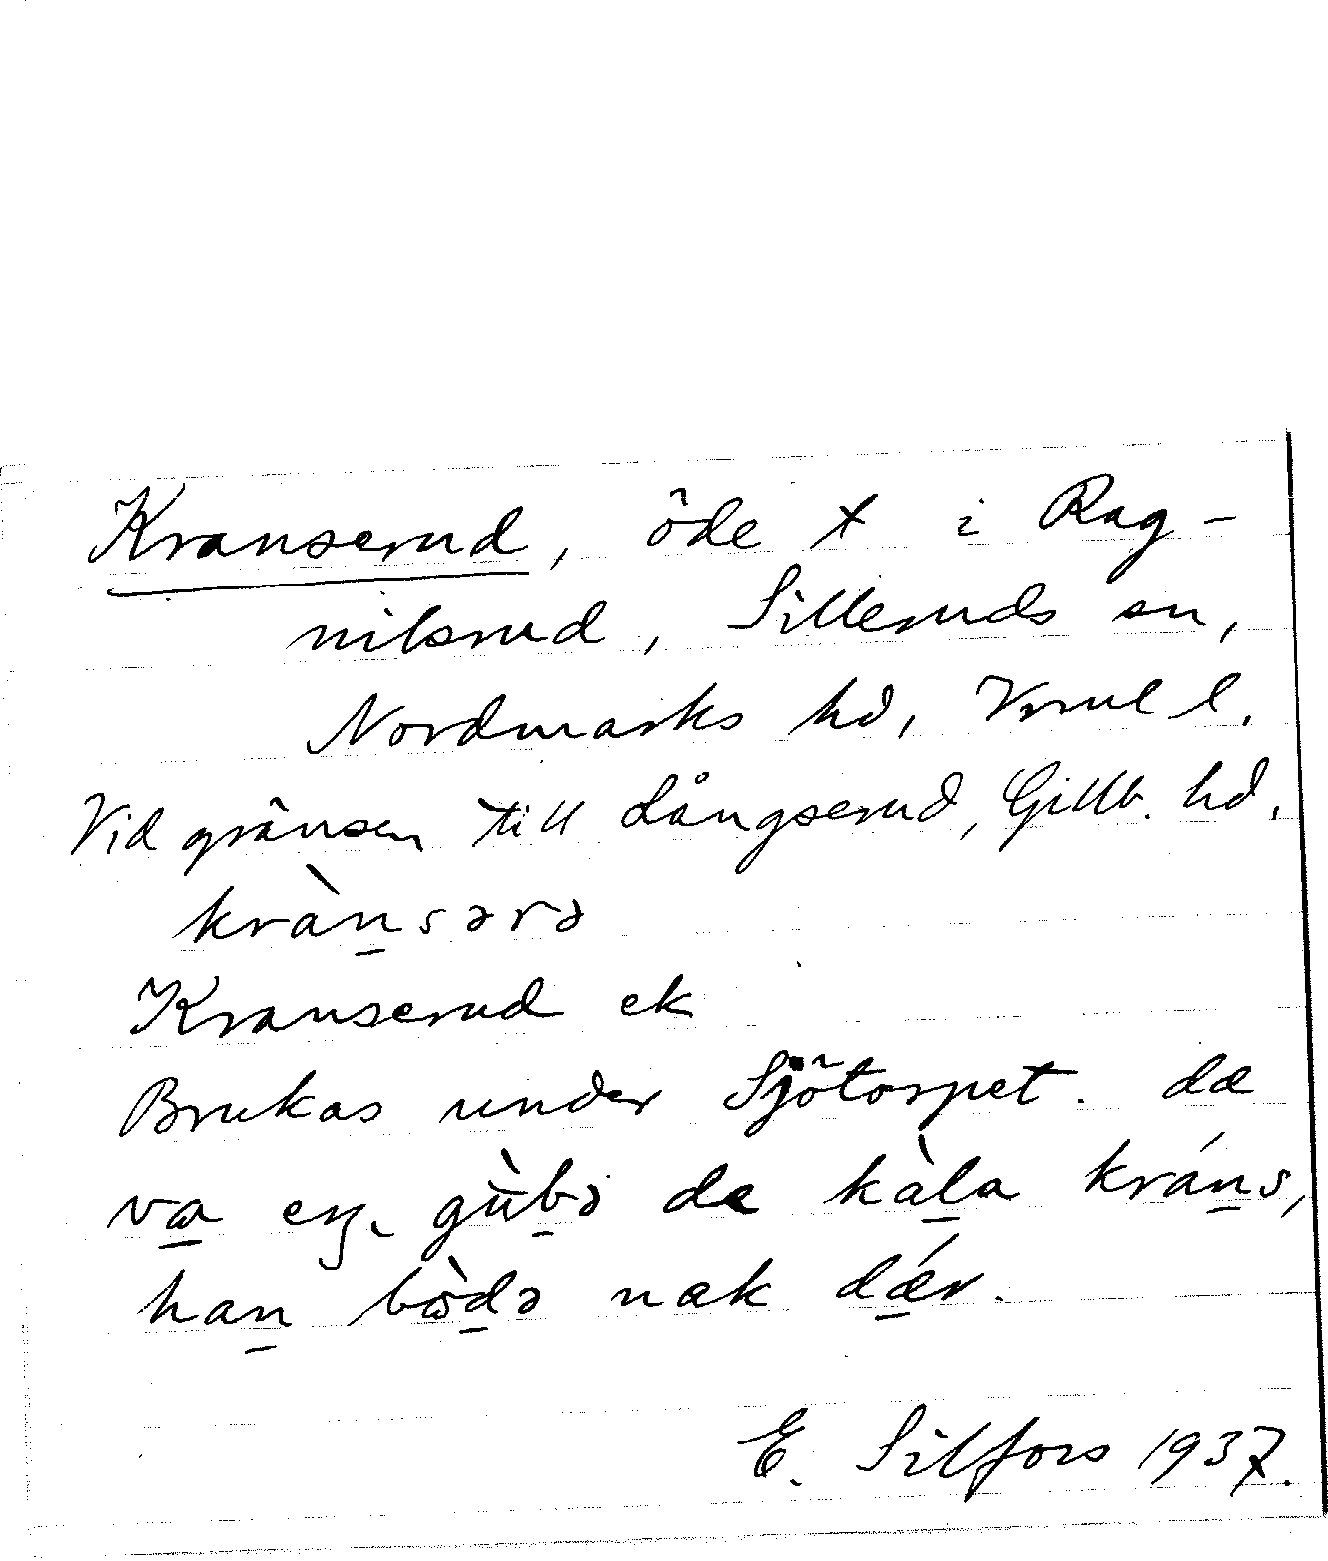 Kranserud, öde t i Rag-
nilsrud, Silleruds sn,
Nordmarks hd, Vrml l.
Vid gränsen till Långserud, Gillb. hd.
kràn̲sərə
Kranserud ek
Brukas under Sjötorpet. dæ
va̲ en gùb̲ə də kàl̲a krán̲s,
han̲ bòd̲ə nək dǽ̲r.
E. Silfors 1937.